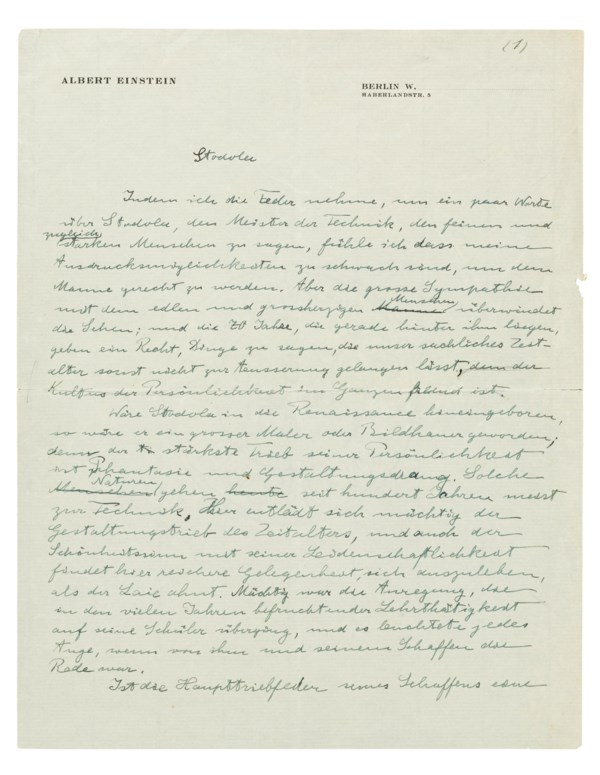 (1)
ALBERT EINSTEIN
BERLIN W.
HABERLANDSTR. 5
Stodola
Indem ich die Feder nehme, um ein paar Worte
über Stodola, den Meister der Technik, den feinen und
zugleich
starken Menschen zu sagen, fühle ich dass meine
Ausdrucksmöglichkeiten zu schwach sind, um dem
Manne gerecht zu werden. Aber die grosse Sympathie
Menschen
mit dem edlen und grossherzigen Manne überwindet
die Scheu; und die 70 Jahre, die gerade hinter ihm liegen,
geben ein Recht, Dinge zu sagen, die unser sachliches Zeit-
alter sonst nicht zur Aeusserung gelangen lässt, dem der
Kultus der Persönlichkeit im Ganzen fremd ist.
Wäre Stodola in die Renaissance hineingeboren,
so wäre er ein grosser Maler oder Bildhauer geworden;
denn der stärkste Trieb seiner Persönlichkeit
ist Phantasie und Gestaltungsdrang. Solche
Naturen
Menschen gehen heute seit hundert Jahren meist
zur Technik. Hier entlädt sich mächtig der
Gestaltungstrieb des Zeitalters, und auch der
Schönheitssinn mit seiner Leidenschaftlichkeit
findet hier reichere Gelegenheit, sich auszuleben,
als der Laie ahnt. Mächtig war die Anregung, die
in den vielen Jahren befruchtender Lehrthätigkeit
auf seine Schüler überging, und es leuchtete jedes
Auge, wenn von ihm und seinem Schaffen die
Rede war.
Ist die Haupttriebfeder seines Schaffens eine